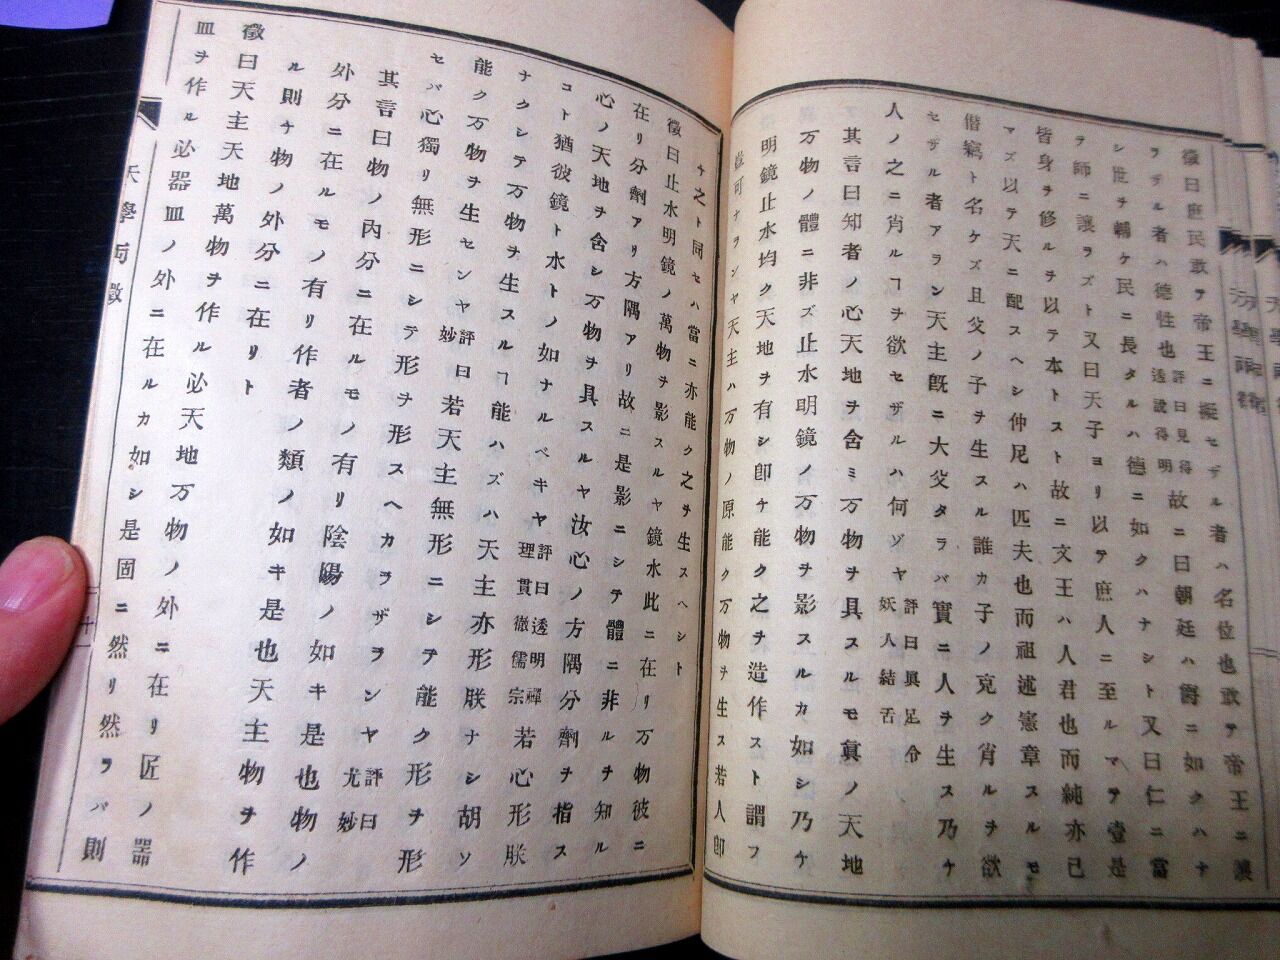 徵曰庶民敢テ帝王ニ擬セザル者ハ名位也敢テ帝王ニ讓
ラザル者ハ德性也評曰見得透說得明故ニ曰朝廷ハ爵ニ如クハナ
シ世ヲ輔ケ民ニ長タルハ德ニ如クハナシト又曰仁ニ當
テ師ニ讓ラズト又曰天子ヨリ以テ庶人ニ至ルマデ壹是
皆身ヲ修ルヲ以テ本トスト故ニ文王ハ人君也而純亦已
マズ以テ天ニ配スヘシ仲尼ハ匹夫也而祖述憲章スルモ
僭竊ト名ケズ且父ノ子ヲ生スル誰カ子ノ克ク肖ルヲ欲
セザル者アラン天主旣ニ大父タラバ實ニ人ヲ生ス乃ケ
人ノ之ニ肖ルヿヲ欲セザルハ何ゾヤ評曰眞足令妖人結舌
其言曰知者ノ心天地ヲ含ミ万物ヲ具スルモ眞ノ天地
万物ノ體ニ非ズ止水明鏡ノ万物ヲ影スルカ如シ乃ケ
明鏡止水均ク天地ヲ有シ卽ケ能ク之ヲ造作スト謂フ
豈可ナランヤ天主ハ万物ノ原能ク万物ヲ生ス若人卽
ケ之ト同セハ當ニ亦能ク之ヲ生スヘシト
徵曰止水明鏡ノ萬物ヲ影スルヤ鏡水此ニ在リ万物彼ニ
在リ分劑アリ方隅アリ故ニ是影ニシテ體ニ非ルヲ知ル
心ノ天地ヲ含シ万物ヲ具スルヤ汝心ノ方隅分劑ヲ指ス
コト猶彼鏡ト水トノ如ナルベキヤ評曰透明禪理貫徹儒宗若心形朕
ナクシテ万物ヲ生スルヿ能ハズハ天主亦形朕ナシ胡ソ
能ク万物ヲ生センヤ評曰妙若天主無形ニシテ能ク形ヲ形
セバ心獨リ無形ニシテ形ヲ形スヘカラザランヤ評曰尤妙
其言曰物ノ內分ニ在ルモノ有リ陰陽ノ如キ是也物ノ
外分ニ在ルモノ有リ作者ノ類ノ如キ是也天主物ヲ作
ル則ケ物ノ外分ニ在リト
徵曰天主天地萬物ヲ作ル必天地万物ノ外ニ在リ匠ノ器
皿ヲ作ル必器皿ノ外ニ在ルカ如シ是固ニ然リ然ラバ則
天學再徵
二十一